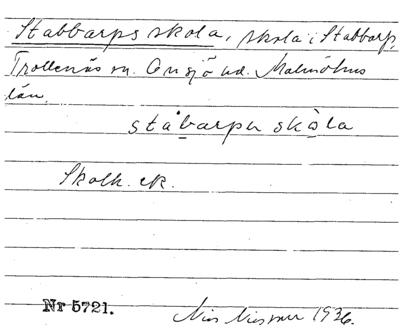 Stabbarps skola, skola i Stabbarp,
Trollenäs sn. Onsjö hd. Malmöhus
län.
stabarpu skola
Skolk. ek.
Nr 5721.
1936.